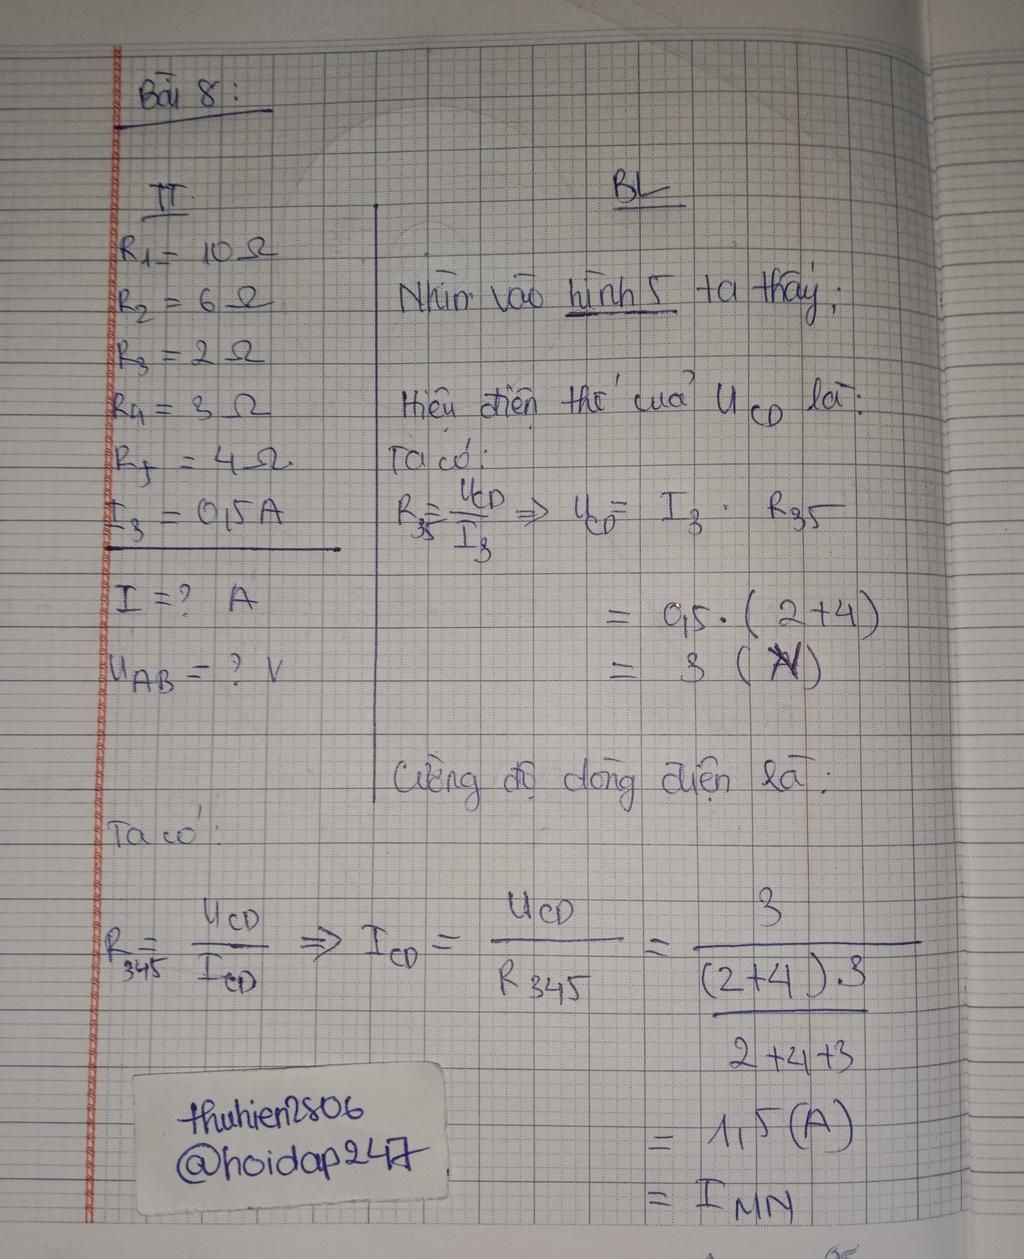 Bài 8:
TT
R1 = 10 Ω
R2 = 6 Ω
R3 = 2 Ω
R4 = 3 Ω
R5 = 4 Ω
I3 = 0,5 A
I = ? A
UAB = ? V
BL
Nhìn vào hình 5 ta thấy;
Hiệu điện thế của UCD là:
Ta có:
R35 = UCD / I3 ⇒ UCD = I3 . R35
= 0,5 . (2+4)
= 3 (V)
Cường độ dòng điện là:
Ta có:
R345 = UCD / ICD ⇒ ICD = UCD / R345 = 3 / ((2+4).3 / 2+4+3)
= 1,5 (A)
= IMN
thuhien2806
@hoidap247